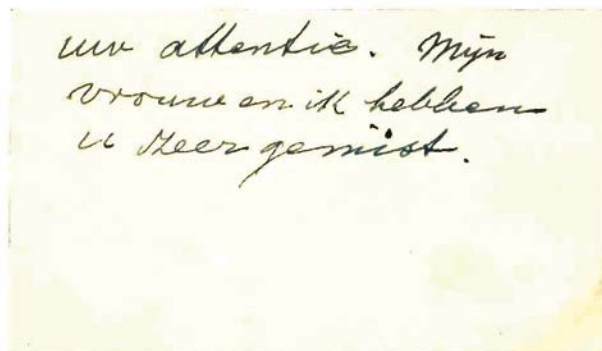 uw attentie. Mijn
vrouw en ik hebben
u zeer gemist.